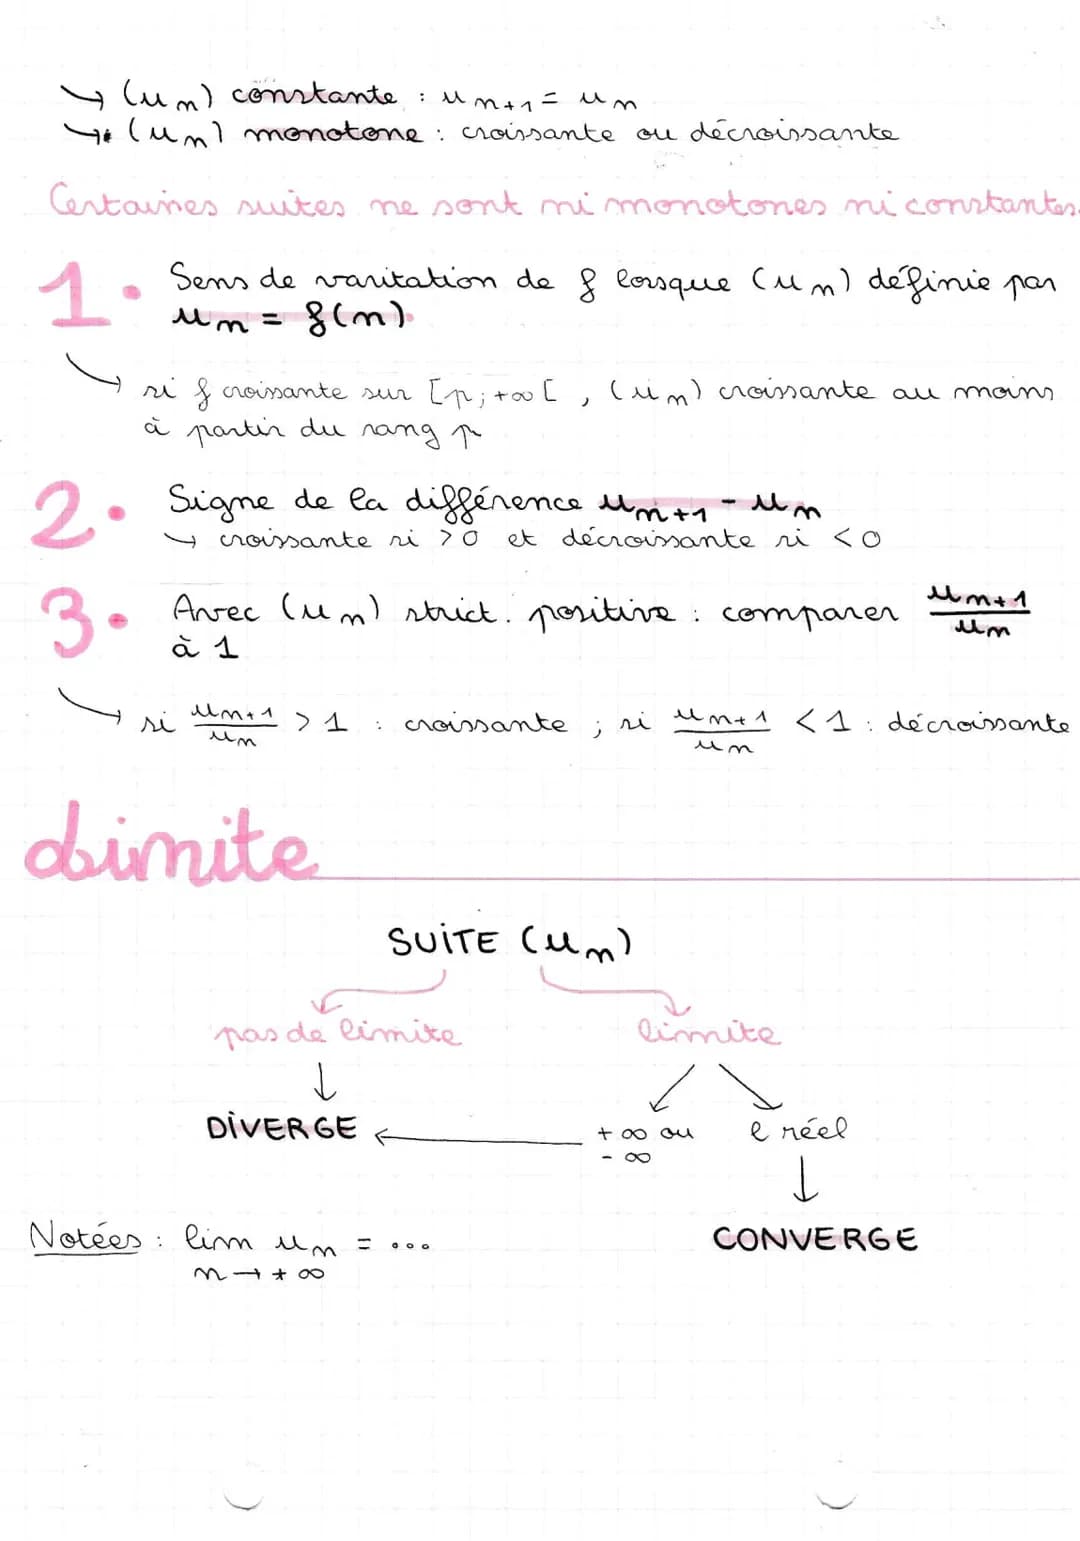 → (un) constante : un+1 = un
→ • (un) monotone : croissante ou décroissante
Certaines suites ne sont ni monotones ni constantes.
1. Sens de varitation de f lorsque (un) définie par
un = f(n).
→ si f croissante sur [p; +∞[, (un) croissante au moins
à partir du rang p
2. Signe de la différence un+1 - un
→ croissante si >0 et décroissante si <0
3. Avec (un) strict. positive : comparer un+1/un
à 1
→ si un+1/un > 1 : croissante ; si un+1/un < 1 : décroissante
Limite
SUITE (un)
pas de limite limite
↓
DIVERGE ← +∞ ou l réel
-∞
↓
Notées : lim un = ... CONVERGE
n → +∞